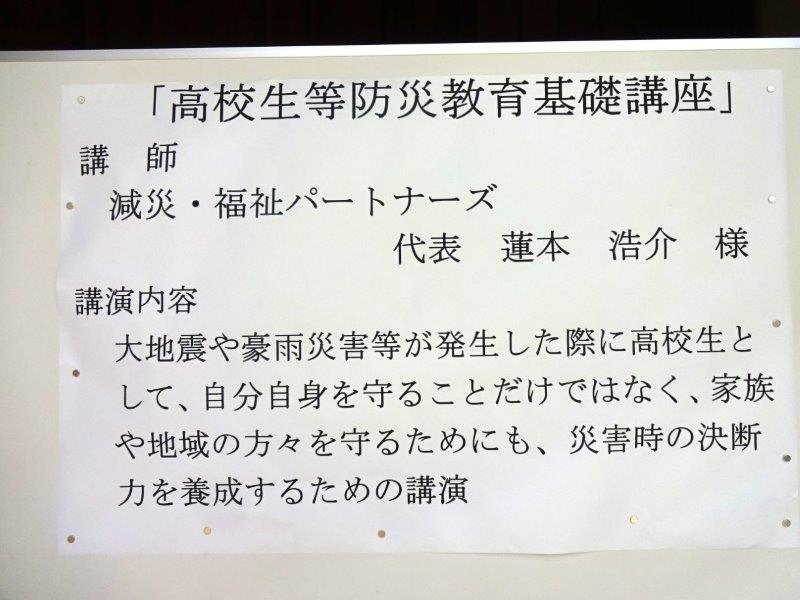 「高校生等防災教育基礎講座」
講　師
減災・福祉パートナーズ
代表　蓮本　浩介　様
講演内容
大地震や豪雨災害等が発生した際に高校生と
して、自分自身を守ることだけではなく、家族
や地域の方々を守るためにも、災害時の決断
力を養成するための講演